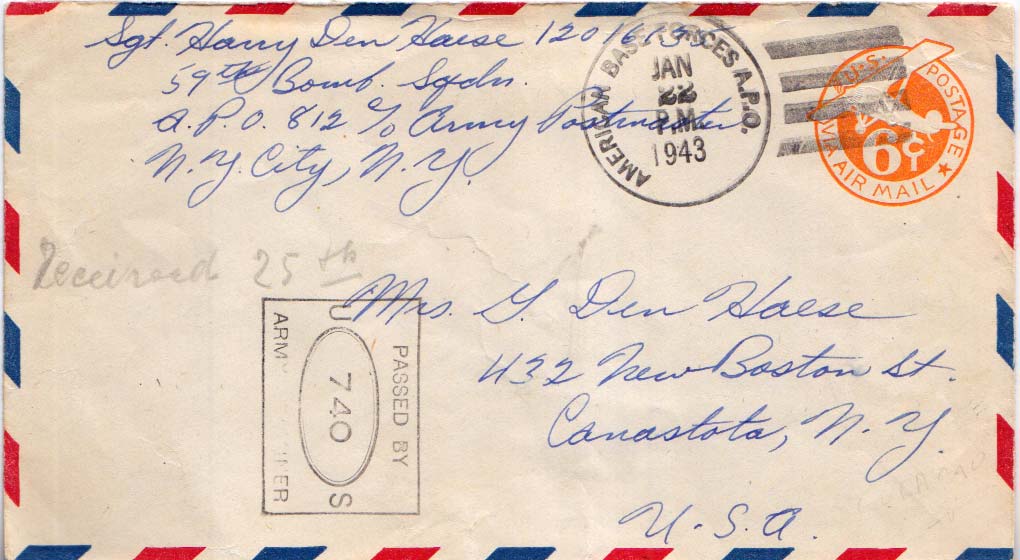 Sgt. Harry Den Haese
59th Bomb. Sqdn.
A.P.O. 812 c/o Army Postmaster
N.Y. City, N.Y.
AMERICAN BASE FORCES A.P.O.
JAN
22
P.M.
1943
U.S. POSTAGE
6¢
VIA AIR MAIL
Received 25th
PASSED BY
U 740 S
ARMY EXAMINER
Mrs. G. Den Haese
432 New Boston St.
Canastota, N.Y.
U.S.A.